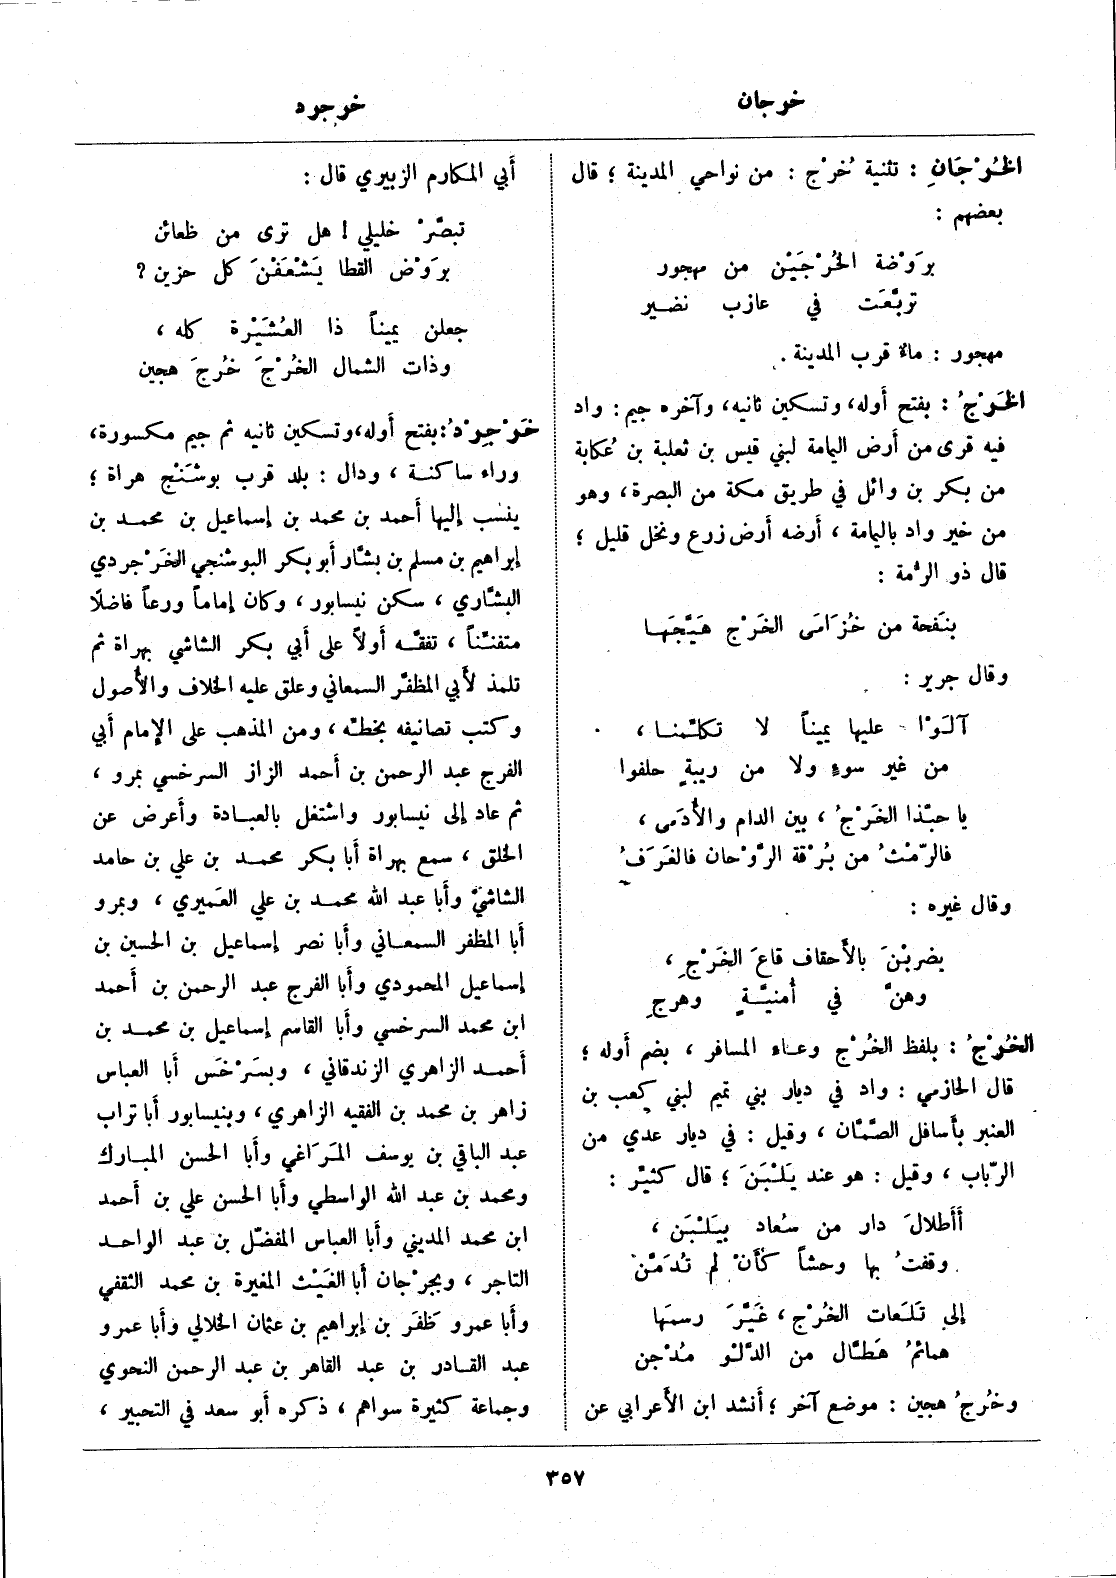 خرجان
خرجرد
الخُرْجَانِ : تثنية خُرْج : من نواحي المدينة ؛ قال
بعضهم :
برَوْضة الخُرْجَيْن من مهجور
تربَّعَت في عازب نضير
مهجور : ماءٌ قرب المدينة .
الخَرْجُ : بفتح أوله، وتسكين ثانيه، وآخره جيم : واد
فيه قرى من أرض اليمامة لبني قيس بن ثعلبة بن عُكابة
من بكر بن وائل في طريق مكة من البصرة، وهو
من خير واد باليمامة ، أرضه أرض زرع ونخل قليل ؛
قال ذو الرُّمة :
بنَفحة من خُزَامَى الخَرْج هَيَّجَهـا
وقال جرير :
آلَوْا عليها يميناً لا تكلّمنـا ،
من غير سوءٍ ولا من ريبةٍ حلفوا
يا حبّذا الخَرْجُ ، بين الدام والأُدَمَى ،
فالرِّمْثُ من بُرْقة الرَّوْحان فالغَرَفُ
وقال غيره :
يضربْنَ بالأَحقاف قاعَ الخَرْجِ ،
وهنَّ في أُمنيَّـةٍ وهرجِ
الخُرْجُ : بلفظ الخُرْج وعـاء المسافر ، بضم أوله ؛
قال الحازمي : واد في ديار بني تميم لبني كعب بن
العنبر بأسافل الصَّمَّان ، وقيل : في ديار عدي من
الرّباب ، وقيل : هو عند يَلْبَنَ ؛ قال كثيِّر :
أَأَطلالَ دار من سُعاد بيَلْبَن ،
وقفتُ بها وحشاً كأَنْ لم تُدَمَّن
إلى تَلَعات الخُرْج ، غَيَّرَ رسمَها
همائمُ هَطّـال من الدَّلْـو مُدْجن
وخُرجُ هجين : موضع آخر ؛ أنشد ابن الأَعرابي عن
أبي المكارم الزبيري قال :
تبصَّرْ خليلي ! هل ترى من ظعائن
برَوْض القطا يَشْعَفْنَ كل حزين ؟
جعلن يميناً ذا العُشَيْرة كله ،
وذات الشمال الخُرْجَ خُرجَ هجين
خَرْجِرْدُ: بفتح أوله، وتسكين ثانيه ثم جيم مكسورة،
وراء ساكنـة ، ودال : بلد قرب بوشَنْج هراة ؛
ينسب إليها أحمد بن محمد بن إسماعيل بن محمـد بن
إبراهيم بن مسلم بن بشّار أبو بكر البوشنجي الخَرْجردي
البشّاري ، سكن نيسابور ، وكان إماماً ورعاً فاضلًا
متفنّناً ، تفقـّه أولاً على أبي بكر الشاشي بهراة ثم
تلمذ لأبي المظفّر السمعاني وعلق عليه الخلاف والأُصول
وكتب تصانيفه بخطّه ، ومن المذهب على الإمام أبي
الفرج عبد الرحمن بن أحمد الزاز السرخسي بمرو ،
ثم عاد إلى نيسابور واشتغل بالعبـادة وأعرض عن
الخلق ، سمع بهراة أبا بكر محمـد بن علي بن حامد
الشاشيّ وأبا عبد الله محمـد بن علي العَميري ، وبمرو
أبا المظفر السمعـاني وأبا نصر إسماعيل بن الحسين بن
إسماعيل المحمودي وأبا الفرج عبد الرحمن بن أحمد
ابن محمد السرخسي وأبا القاسم إسماعيل بن محمـد بن
أحمـد الزاهري الزندقاني ، وبسَرْخَس أبا العباس
زاهر بن محمد بن الفقيه الزاهري، وبنيسابور أبا تراب
عبد الباقي بن يوسف المَرَاغي وأبا الحسن المبـارك
ومحمد بن عبد الله الواسطي وأبا الحسن علي بن أحمد
ابن محمد المديني وأبا العباس المفضّل بن عبد الواحـد
التاجر ، وبجرْجان أبا الغَيْث المغيرة بن محمد الثقفي
وأبا عمرو ظَفَر بن إبراهيم بن عثمان الخلالي وأبا عمرو
عبد القـادر بن عبد القاهر بن عبد الرحمن النحوي
وجماعة كثيرة سواهم ، ذكره أبو سعد في التحبير ،
٣٥٧